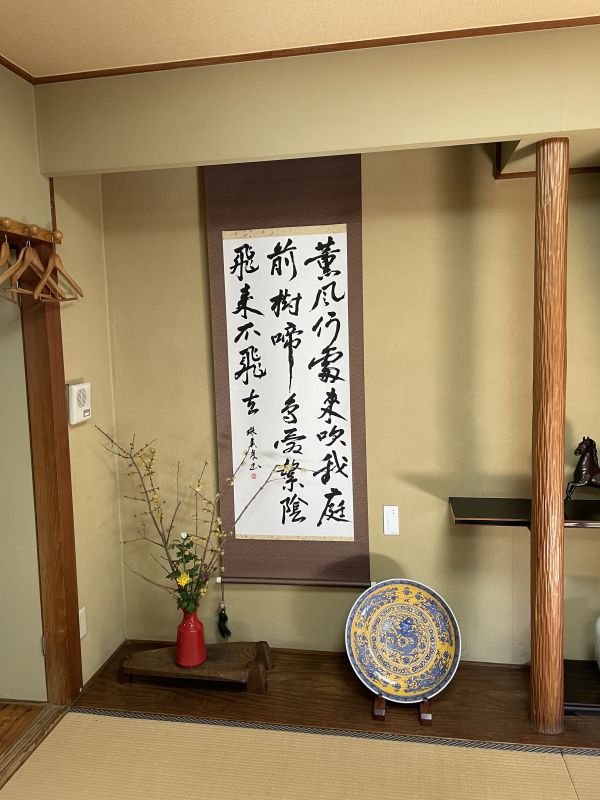 薫風何處来吹我庭
前樹啼鳥愛繁陰
飛来不飛去